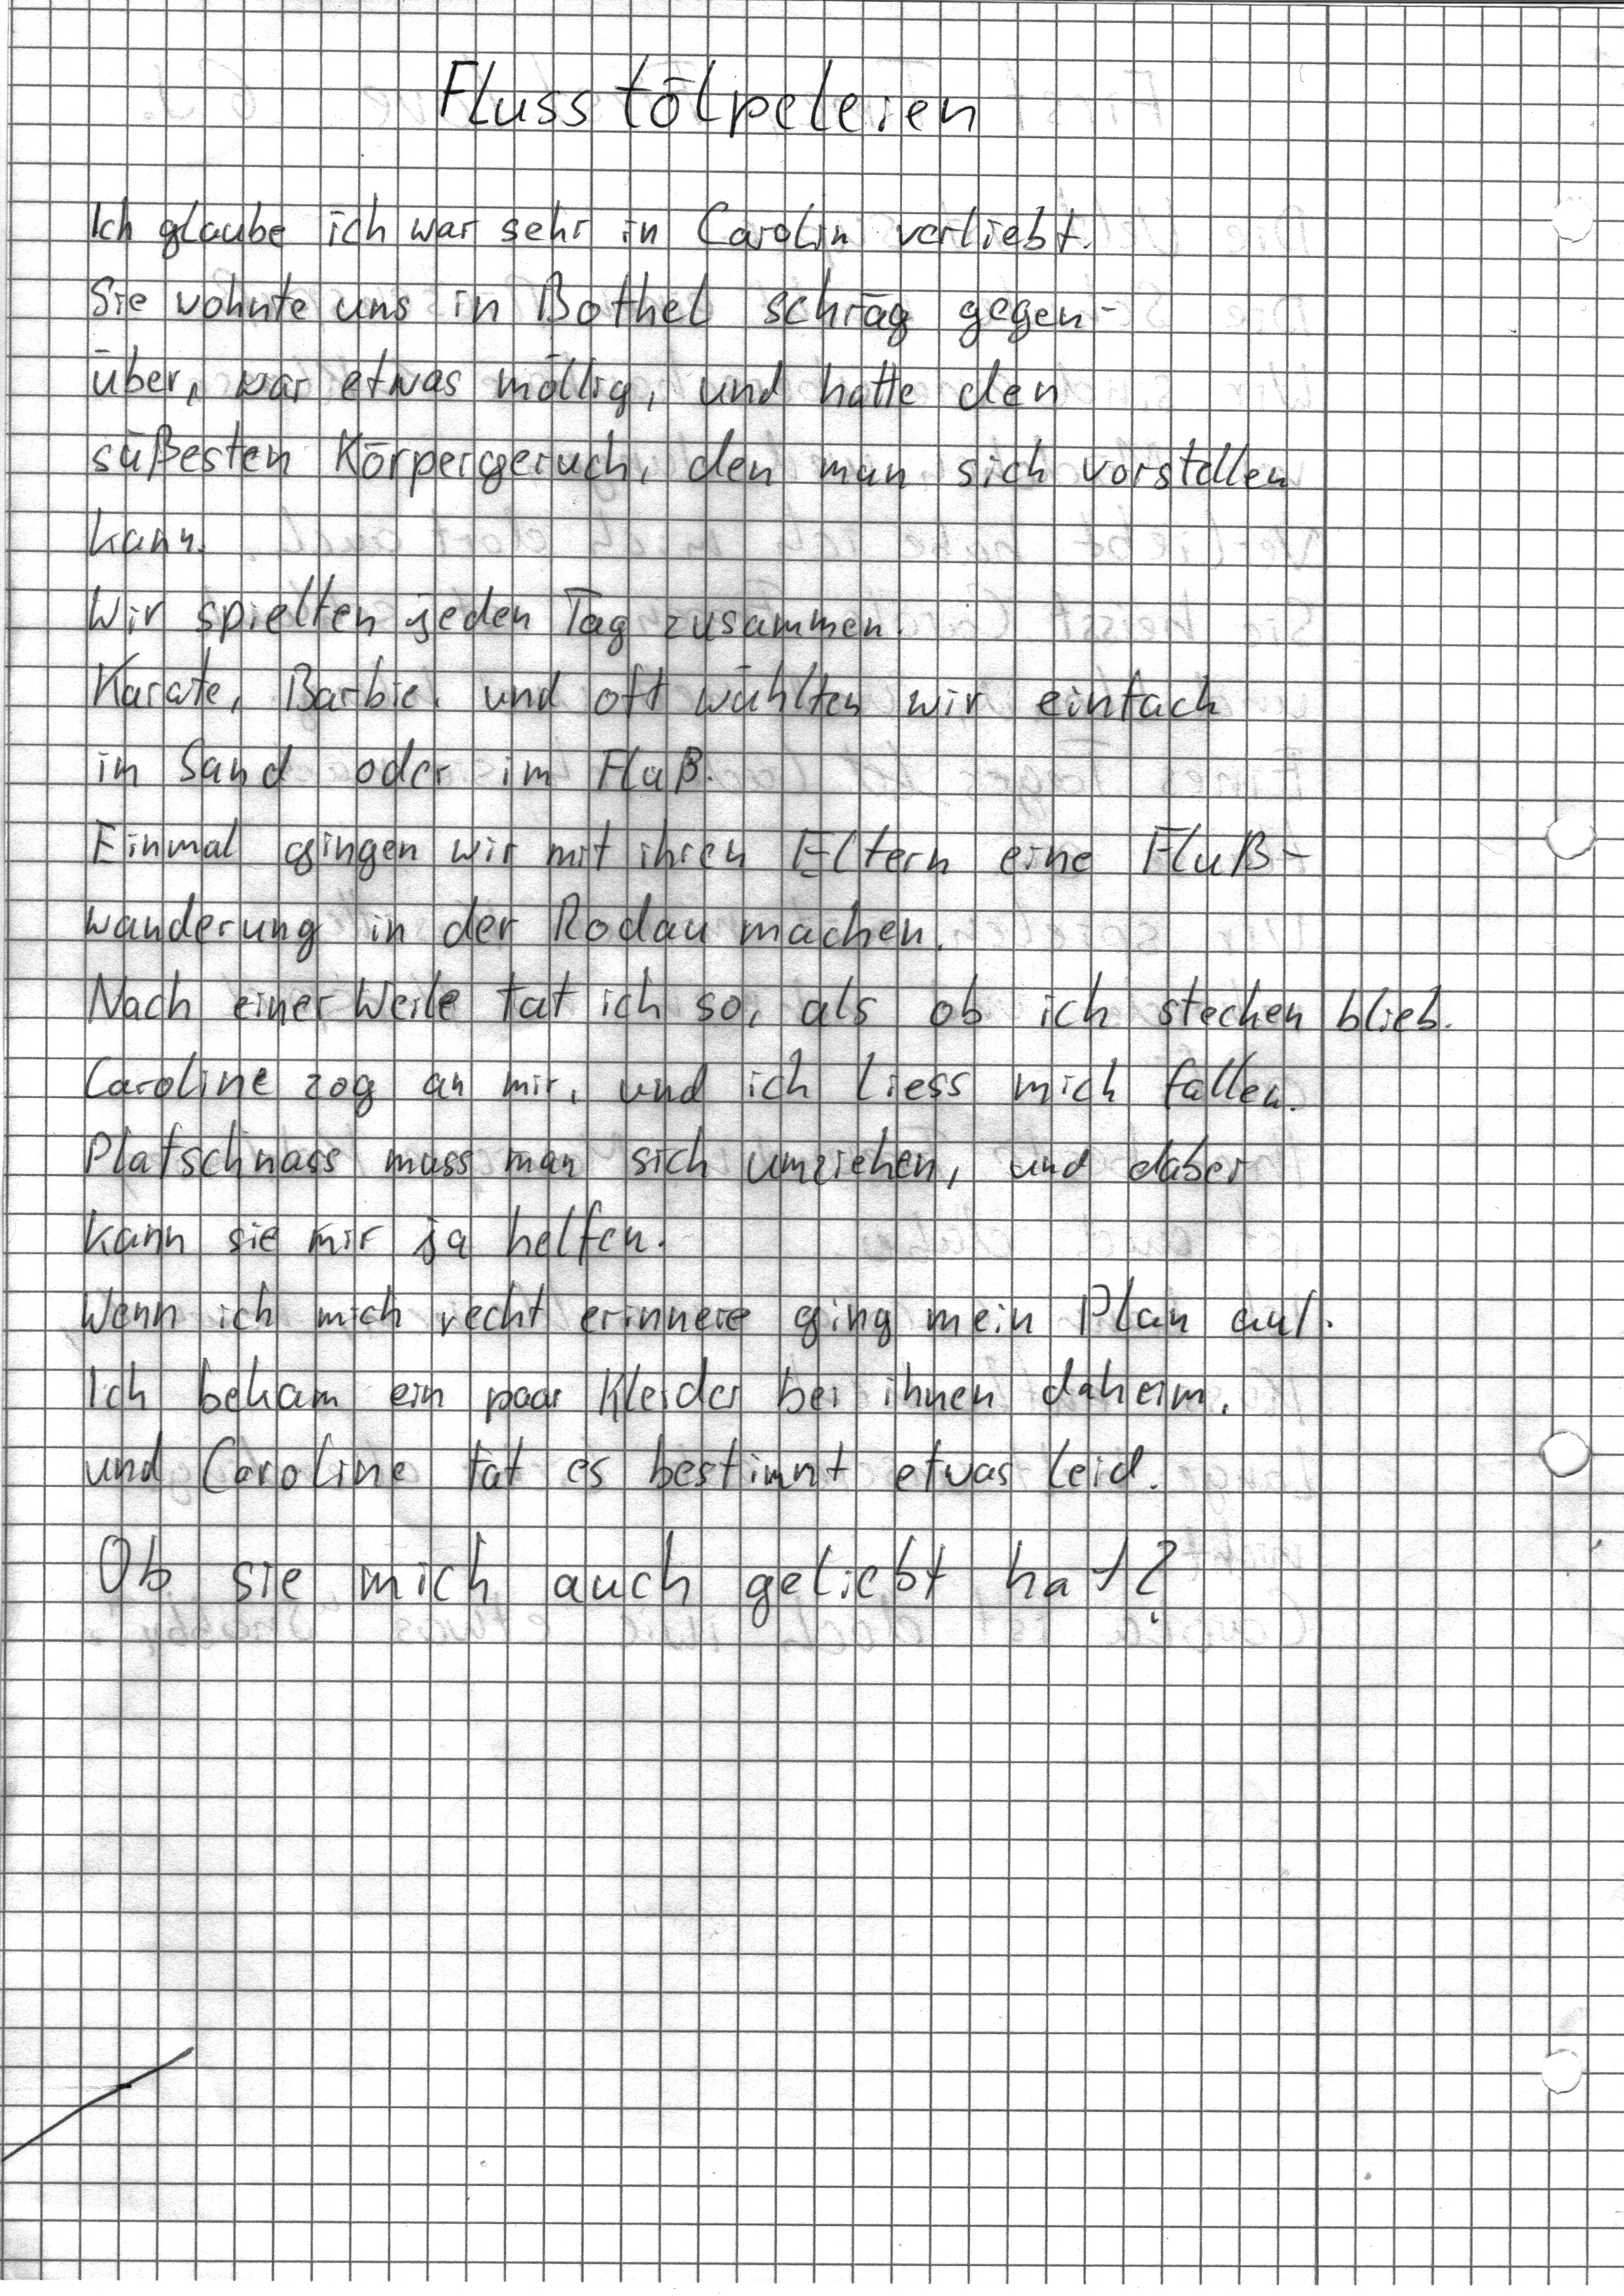 Flusstölpeleien
Ich glaube ich war sehr in Carolin verliebt.
Sie wohnte uns in Bothel schräg gegen-
über, war etwas möllig, und hatte den
süßesten Körpergeruch, den man sich vorstellen
kann.
Wir spielten jeden Tag zusammen.
Karate, Barbie, und oft wühlten wir einfach
in Sand oder im Fluß.
Einmal gingen wir mit ihren Eltern eine Fluß-
wanderung in der Rodau machen.
Nach einer Weile tat ich so, als ob ich stecken blieb.
Caroline zog an mir, und ich liess mich fallen.
Platschnass muss man sich umziehen, und dabei
kann sie mir ja helfen.
Wenn ich mich recht erinnere ging mein Plan auf.
Ich bekam ein paar Kleider bei ihnen daheim,
und Caroline tat es bestimmt etwas leid.
Ob sie mich auch geliebt hat?